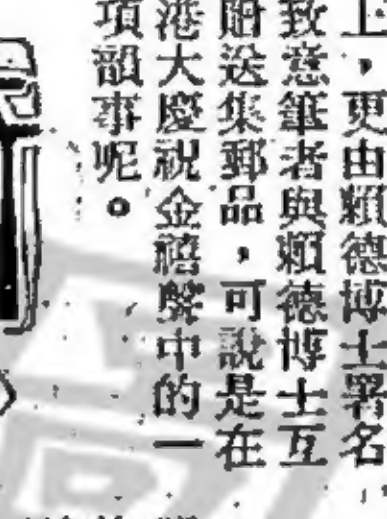 上，更由賴德博士署名
致意筆者與賴德博士互
贈送集郵品，可說是在
港大慶祝金禧聲中的一
項韻事呢。